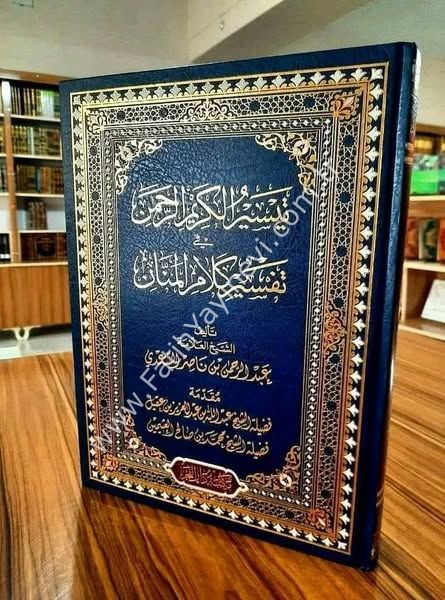 تيسير الكريم الرحمن
في
تفسير كلام المنان
تأليف
الشيخ العلامة
عبد الرحمن بن ناصر السعدي
مقدمة
فضيلة الشيخ عبد الله بن عبد العزيز بن عقيل
فضيلة الشيخ محمد بن صالح العثيمين
www.FajrYayinevi.com